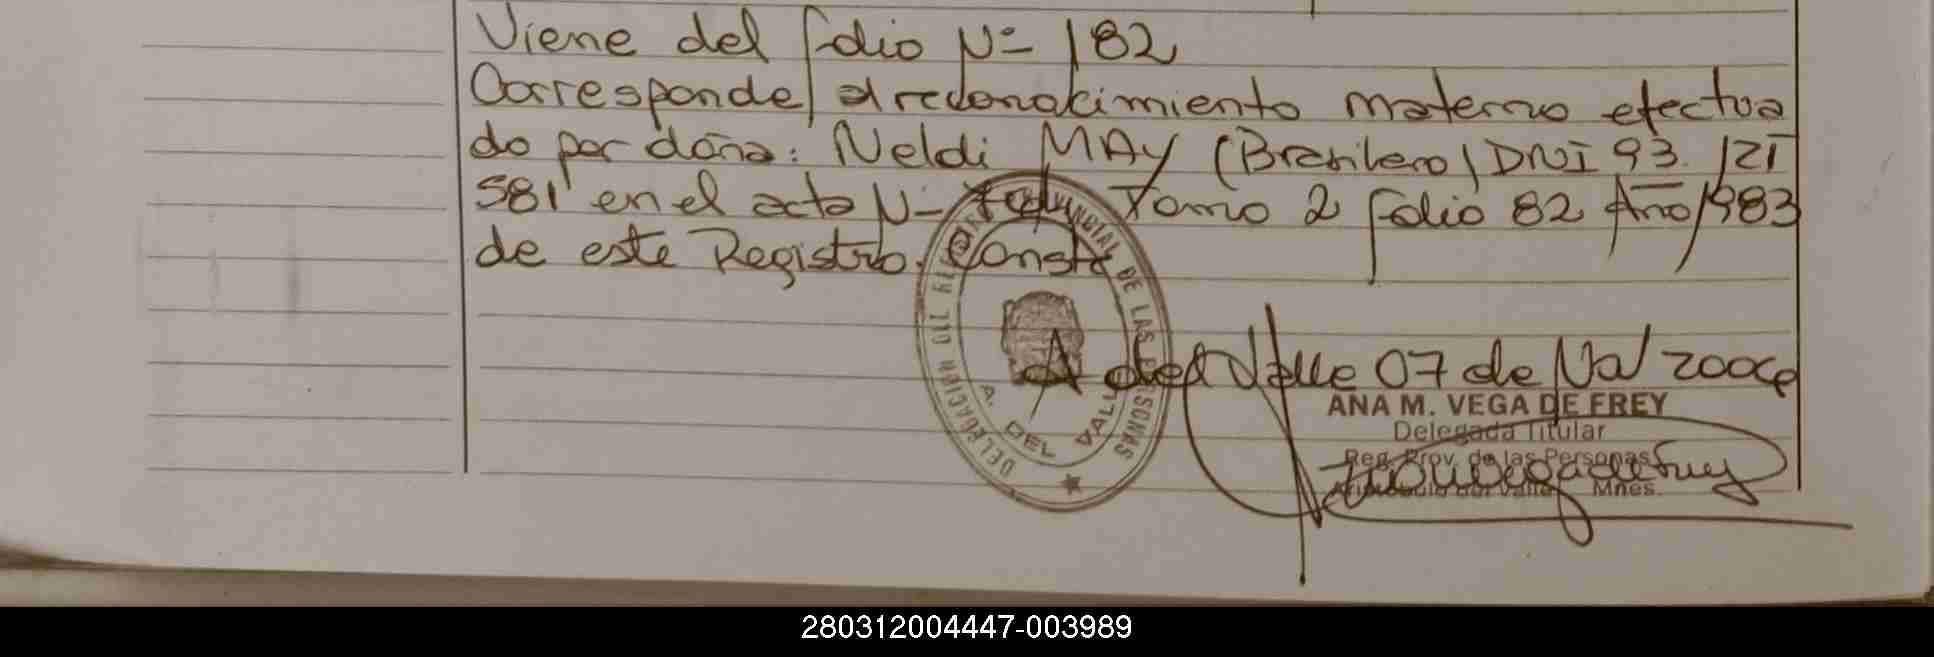 Viene del folio Nº 182
Corresponde/ al reconocimiento materno efectua
do por doña: Neldi MAY (Brasilera) DNI 93. 121
581 en el acta Nº Tomo 2 folio 82 Año/1983
de este Registro. Conste
A del Valle 07 de No/ 2006
ANA M. VEGA DE FREY
Delegada Titular
Reg. Prov. de las Personas
Aristóbulo del Valle Mnes.
DELEGACION DEL DE LAS PERSONAS
A. DEL VALLE
280312004447-003989